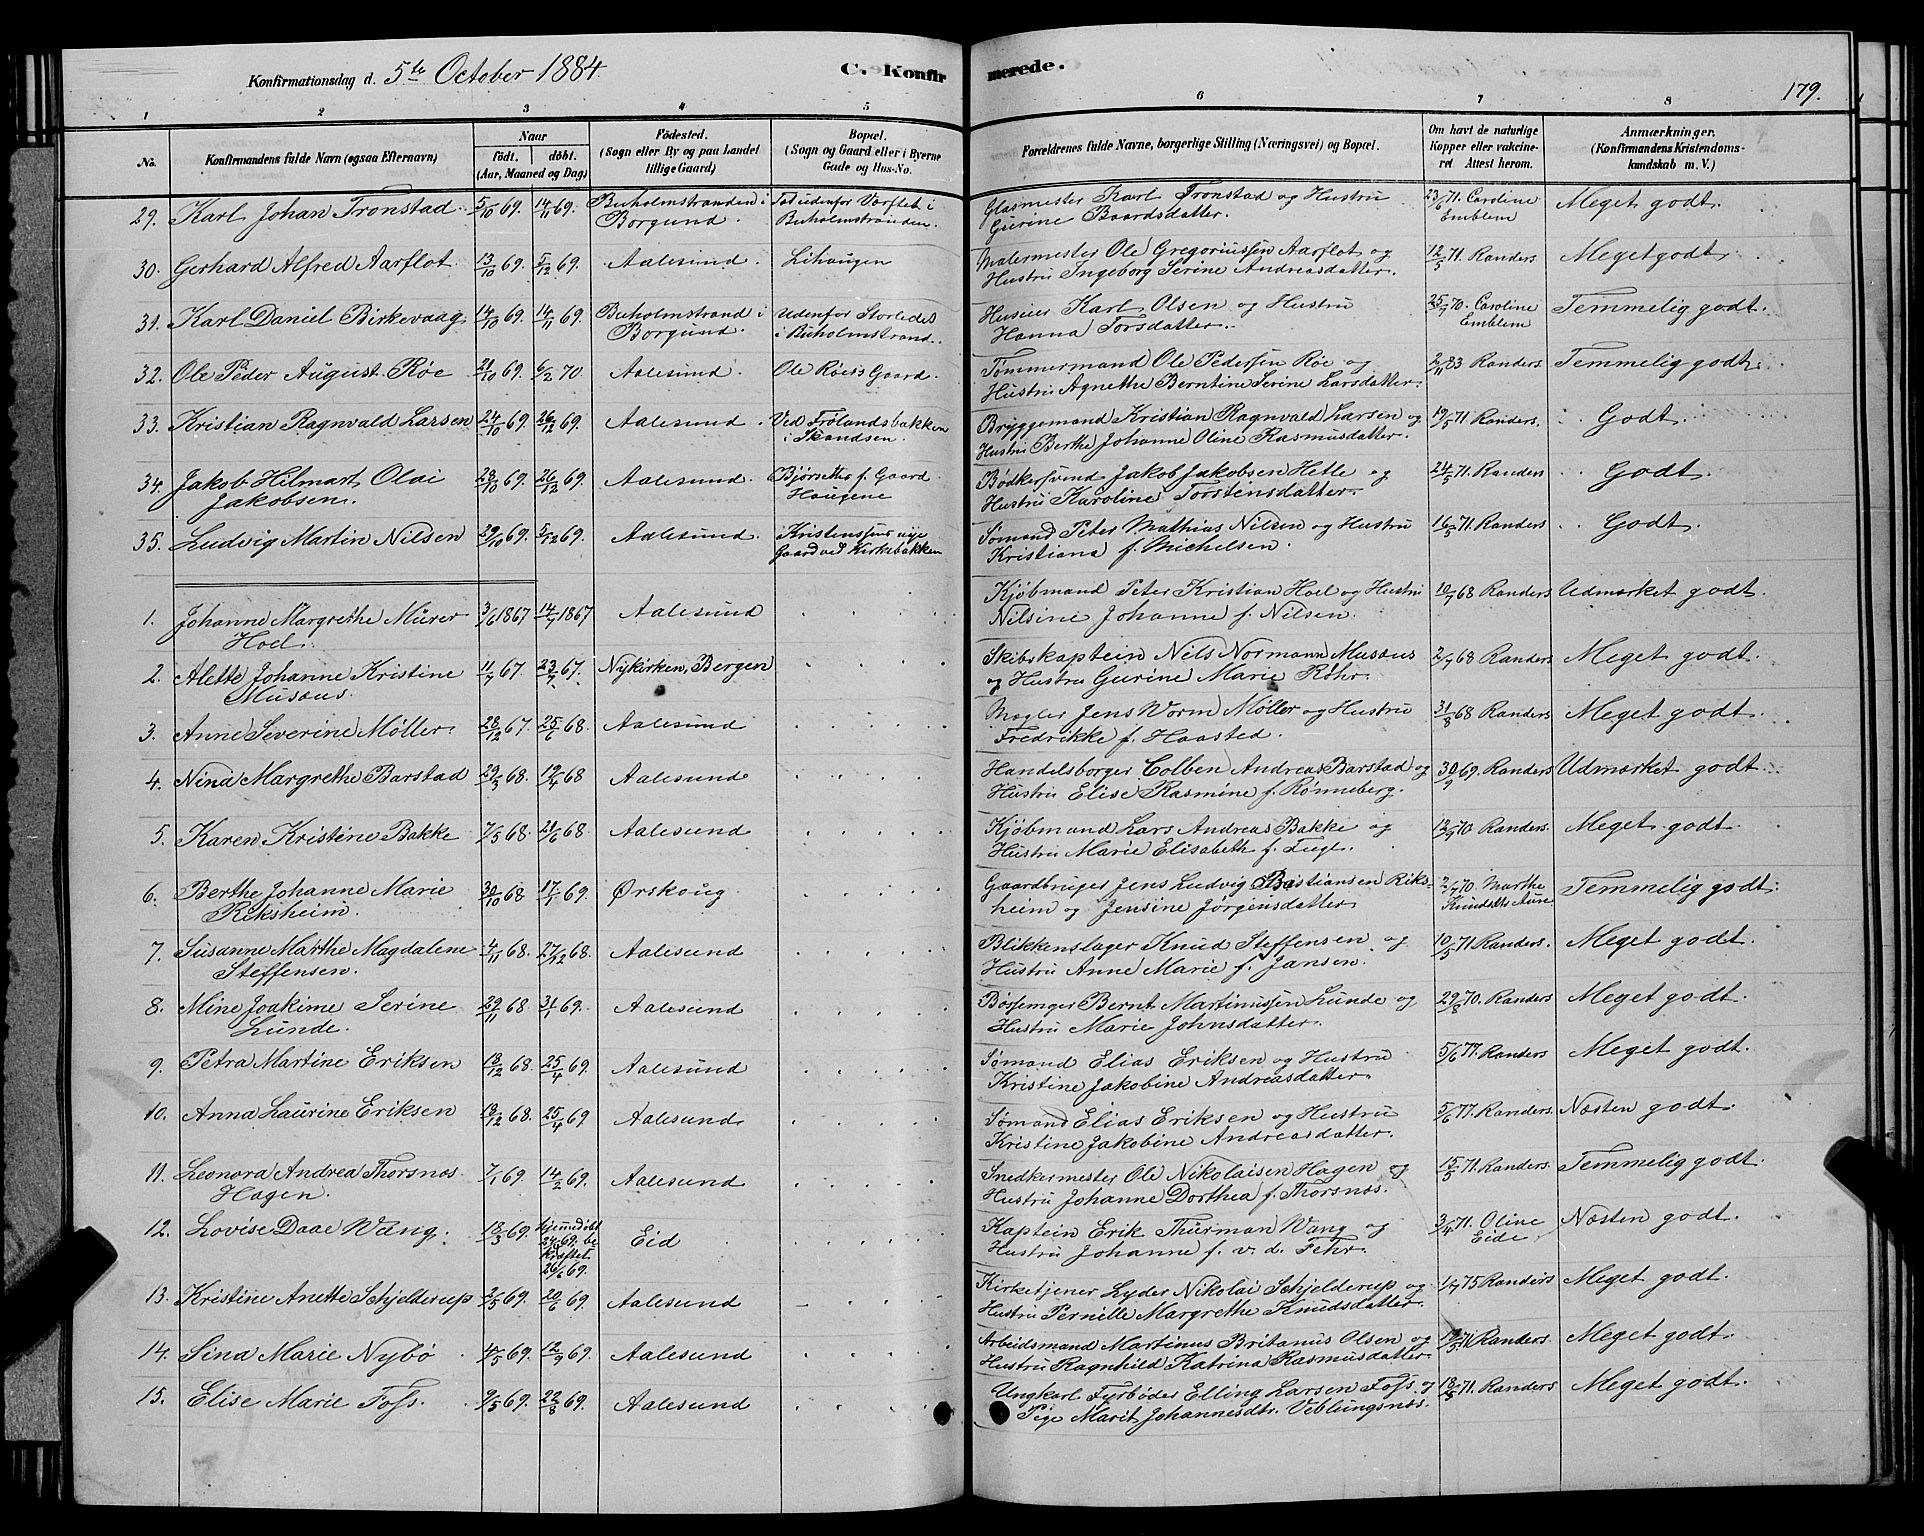 Konfirmationsdag d. 5te October 1884.
C. Konfir
merede.
179.
1 2 3 4 5 6 7 8
No.
Konfirmandens fulde Navn (ogsaa Efternavn)
Naar
født. døbt.
(Aar, Maaned og Dag)
Fødested.
(Sogn eller By og paa Landet
tillige Gaard)
Bopæl.
(Sogn og Gaard eller i Byerne
Gade og Hus-No.
Forældrenes fulde Navne, borgerlige Stilling (Næringsvei) og Bopæl.
Om havt de naturlige
Kopper eller vakcine-
ret. Attest herom.
Anmærkninger.
(Konfirmandens Kristendoms-
kundskab m. V.)
29. Karl Johan Tronstad. 5/10 69. 14/11 69. Buholmstranden i Borgund. udenfor Værftet i Buholmstranden. Glasmester Karl Tronstad og Hustru Gurine Baardsdatter. 23/6 71. Caroline Emblem Meget godt.
30. Gerhard Alfred Aarflot. 13/10 69. 5/12 69. Aalesund. Lihaugen Malermester Ole Gregoriussen Aarflot og Hustru Ingeborg Serine Andreasdatter. 12/5 71. Randers Meget godt.
31. Karl Daniel Birkevaag 14/10 69. 14/11 69. Buholmstrand i Borgund. Udenfor Storledet i Buholmstrand. Huseier Karl Olsen og Hustru Hanna Torsdatter. 25/7 70. Caroline Emblem Temmelig godt.
32. Ole Peder August Røe 21/10 69. 6/2 70. Aalesund. Ole Røes Gaard. Tømmermand Ole Pedersen Røe og Hustru Agnethe Berntine Serine Larsdatter. 2/11 83 Randers. Temmelig godt.
33. Kristian Ragnvald Larsen 24/10 69. 26/12 69. Aalesund. Ved Frølandsbakken i Skandsen. Bryggemand Kristian Ragnvald Larsen og Hustru Berthe Johanne Oline Rasmusdatter. 19/5 71. Randers. Godt.
34. Jakob Hilmart Olai Jakobsen. 28/10 69. 26/12 69. Aalesund. Bjørseths f. Gaard Haugene Bødkersvend Jakob Jakobsen Hetle og Hustru Karoline Torstensdatter. 24/5 71. Randers Godt.
35. Ludvig Martin Nilsen 29/10 69. 5/12 69. Aalesund. Kristensens nye Gaard ved Kirkebakken Sømand Peter Mathias Nilsen og Hustru Kristiana f. Michelsen. 16/5 71. Randers Godt.
1. Johanne Margrethe Mürer Hoel. 3/6 1867 14/7 1867 Aalesund Kjøbmand Peter Kristian Hoel og Hustru Nilsine Johanne f. Nilsen. 10/7 68 Randers Udmærket godt.
2. Alette Johanne Kristine Musæus. 11/7 67. 23/7 67. Nykirken, Bergen Skibskaptein Nils Normann Musæus og Hustru Gurine Marie Røhr. 2/7 68 Randers Meget godt.
3. Anne Severine Møller. 28/12 67. 25/6 68. Aalesund Mægler Jens Worm Møller og Hustru Fredrikke f. Haasted. 31/8 68 Randers Meget godt.
4. Nina Margrethe Barstad 23/3 68. 19/4 68 Aalesund Handelsborger Colben Andreas Barstad og Hustru Elise Rasmine f. Rønneberg. 30/9 69. Randers Udmærket godt.
5. Karen Kristine Bakke 7/5 68. 21/6 68. Aalesund Kjøbmand Lars Andreas Bakke og Hustru Marie Elisabeth f. Fugl. 13/9 70 Randers. Meget godt.
6. Berthe Johanne Marie Riksheim. 30/10 68 17/1 69. Ørskoug Gaardbruger Jens Ludvig Bastiansen Riksheim og Jensine Jørgensdatter. 2/7 70. Marthe Knudsdtr. Aure Temmelig godt.
7. Susanne Marthe Magdalene Steffensen. 4/11 68. 27/12 68. Aalesund Blikkenslager Knud Steffensen og Hustru Anne Marie f. Jansen. 10/5 71 Randers. Meget godt.
8. Mine Joakime Serine Lunde. 29/11 68 31/1 69. Aalesund Børsemger Bernt Martinussen Lunde og Hustru Marie Johnsdatter. 29/8 70. Randers Meget godt.
9. Petra Martine Eriksen 18/12 68. 25/4 69. Aalesund Sømand Elias Eriksen og Hustru Kristine Jakobine Andreasdatter. 5/6 77. Randers Meget godt.
10. Anna Laurine Eriksen 18/12 68. 25/4 69 Aalesund. Sømand Elias Eriksen og Hustru Kristine Jakobine Andreasdatter. 5/6 77. Randers. Næsten godt.
11. Leonora Andrea Thorsnæs Hagen. 7/1 69. 14/2 69. Aalesund Snedkermester Ole Nikolaisen Hagen og Hustru Johanne Dorthea f. Thorsnæs. 15/5 71. Randers. Temmelig godt.
12. Lovise Daae Wang. 18/3 69. hjemmedøbt 24/3 69. bekræftet 26/6 69. Eid Kaptein Erik Thurman Wang og Hustru Johanne f. v. d. Fehr. 3/4 71. Oline Eide Næsten godt.
13. Kristine Anette Schjelderup 2/5 69. 20/6 69. Aalesund Kirketjener Lyder Nikolai Schjelderup og Hustru Pernille Margrethe Knudsdatter. 1/7 75 Randers Meget godt.
14. Sina Marie Nybø 4/5 69. 12/9 69. Aalesund Arbeidsmand Martinus Britanus Olsen og Hustru Ragnhild Katrina Rasmusdatter. 19/5 71 Randers. Meget godt.
15. Elise Marie Foss. 9/5 69. 22/8 69. Aalesund Ungkarl Fyrbøder Elling Larsen Foss og Pige Marit Johannesdtr. Veblungsnæs. 18/5 71. Randers Meget godt.